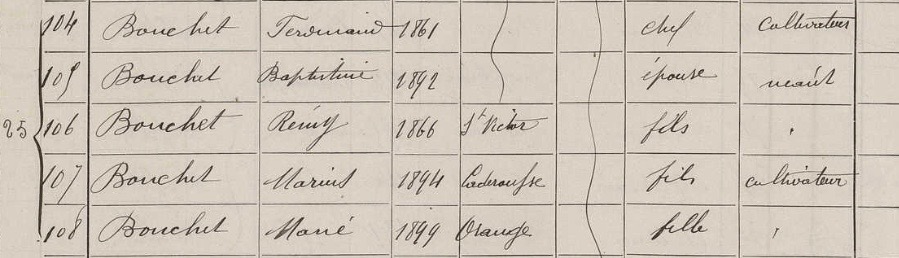 104 Bouchet Ferdinand 1861 chef cultivateur
105 Bouchet Baptistine 1892 épouse néant
25 106 Bouchet Rémy 1866 St Victor fils "
107 Bouchet Marius 1894 Caderousse fils cultivateur
108 Bouchet Marie 1899 Orange fille "